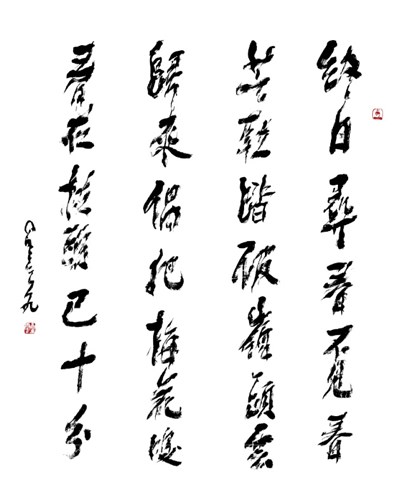 終日尋春不見春
芒鞋踏破嶺頭雲
歸來偶把梅花嗅
春在枝頭已十分